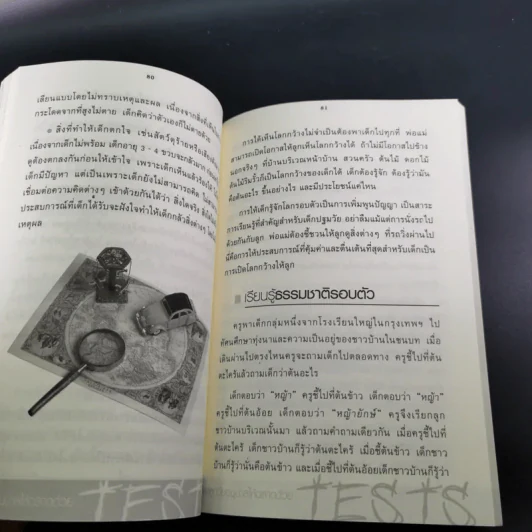 80
เลียนแบบโดยไม่ทราบเหตุและผล เนื่องจากสิ่งที่เด็ก
กระโดดจากที่สูงไม่ตาย เด็กคิดว่าตัวเองก็ไม่ตายด้วย
๑ สิ่งที่ทำให้เด็กตกใจ เช่นสัตว์ดุร้ายหรือเสียง
เนื่องจากเด็กไม่พร้อม เด็กอายุ 3 - 4 ขวบจะกลัวมาก
ดูต้องตกลงกันก่อนให้เข้าใจ เพราะเด็กเห็นแล้วร้อง
เด็กมีปัญหา แต่เป็นเพราะเด็กยังไม่สามารถคิด
เชื่อมต่อความคิดต่างๆ เข้าด้วยกันได้ว่า สิ่งใดจริง สิ่งใด
ประสบการณ์ที่เด็กได้รับจะฝังใจทำให้เด็กกลัวสิ่งต่างๆ โดย
เหตุผล
81
การให้เห็นโลกกว้างไม่จำเป็นต้องพาเด็กไปทุกที่ พ่อแม่
สามารถเปิดโอกาสให้ลูกเห็นโลกกว้างได้ ถ้าไม่มีโอกาสไปข้าง
นอกจริงๆ ที่บ้านบริเวณหน้าบ้าน สวนครัว ต้นไม้ ดอกไม้
ต้นไม้ริมรั้วก็เป็นโลกกว้างของเด็กได้ เด็กต้องรู้จัก ต้องรู้ว่ามัน
คือต้นอะไร ขึ้นอย่างไร และมีประโยชน์แค่ไหน
การให้เด็กรู้จักโลกรอบตัวเป็นการเพิ่มพูนปัญญา เป็นสาระ
การเรียนรู้ที่สำคัญสำหรับเด็กปฐมวัย อย่าลืมแม้แต่การนั่งรถไป
ด้วยกันกับลูก พ่อแม่ต้องชี้ชวนให้ลูกดูสิ่งต่างๆ ที่รถวิ่งผ่านไป
นี่คือการให้ประสบการณ์ที่คุ้มค่าและตื่นเต้นที่สุดสำหรับเด็กเป็น
การเปิดโลกกว้างให้ลูก
เรียนรู้ธรรมชาติรอบตัว
ครูพาเด็กกลุ่มหนึ่งจากโรงเรียนใหญ่ในกรุงเทพฯ ไป
ทัศนศึกษาทุ่งนาและความเป็นอยู่ของชาวบ้านในชนบท เมื่อ
เดินผ่านไปตรงไหนครูจะถามเด็กไปตลอดทาง ครูชี้ไปที่ต้น
ตะไคร้แล้วถามเด็กว่าต้นอะไร
เด็กตอบว่า "หญ้า" ครูชี้ไปที่ต้นข้าว เด็กตอบว่า "หญ้า"
ครูชี้ไปที่ต้นอ้อย เด็กตอบว่า "หญ้ายักษ์" ครูจึงเรียกลูก
ชาวบ้านบริเวณนั้นมา แล้วถามคำถามเดียวกัน เมื่อครูชี้ไปที่
ต้นตะไคร้ เด็กชาวบ้านก็รู้ว่าต้นตะไคร้ เมื่อชี้ต้นข้าว เด็กชาว
บ้านก็รู้ว่านั่นคือต้นข้าว และเมื่อชี้ไปที่ต้นอ้อยเด็กชาวบ้านก็รู้ว่า
TESTS
TESTS